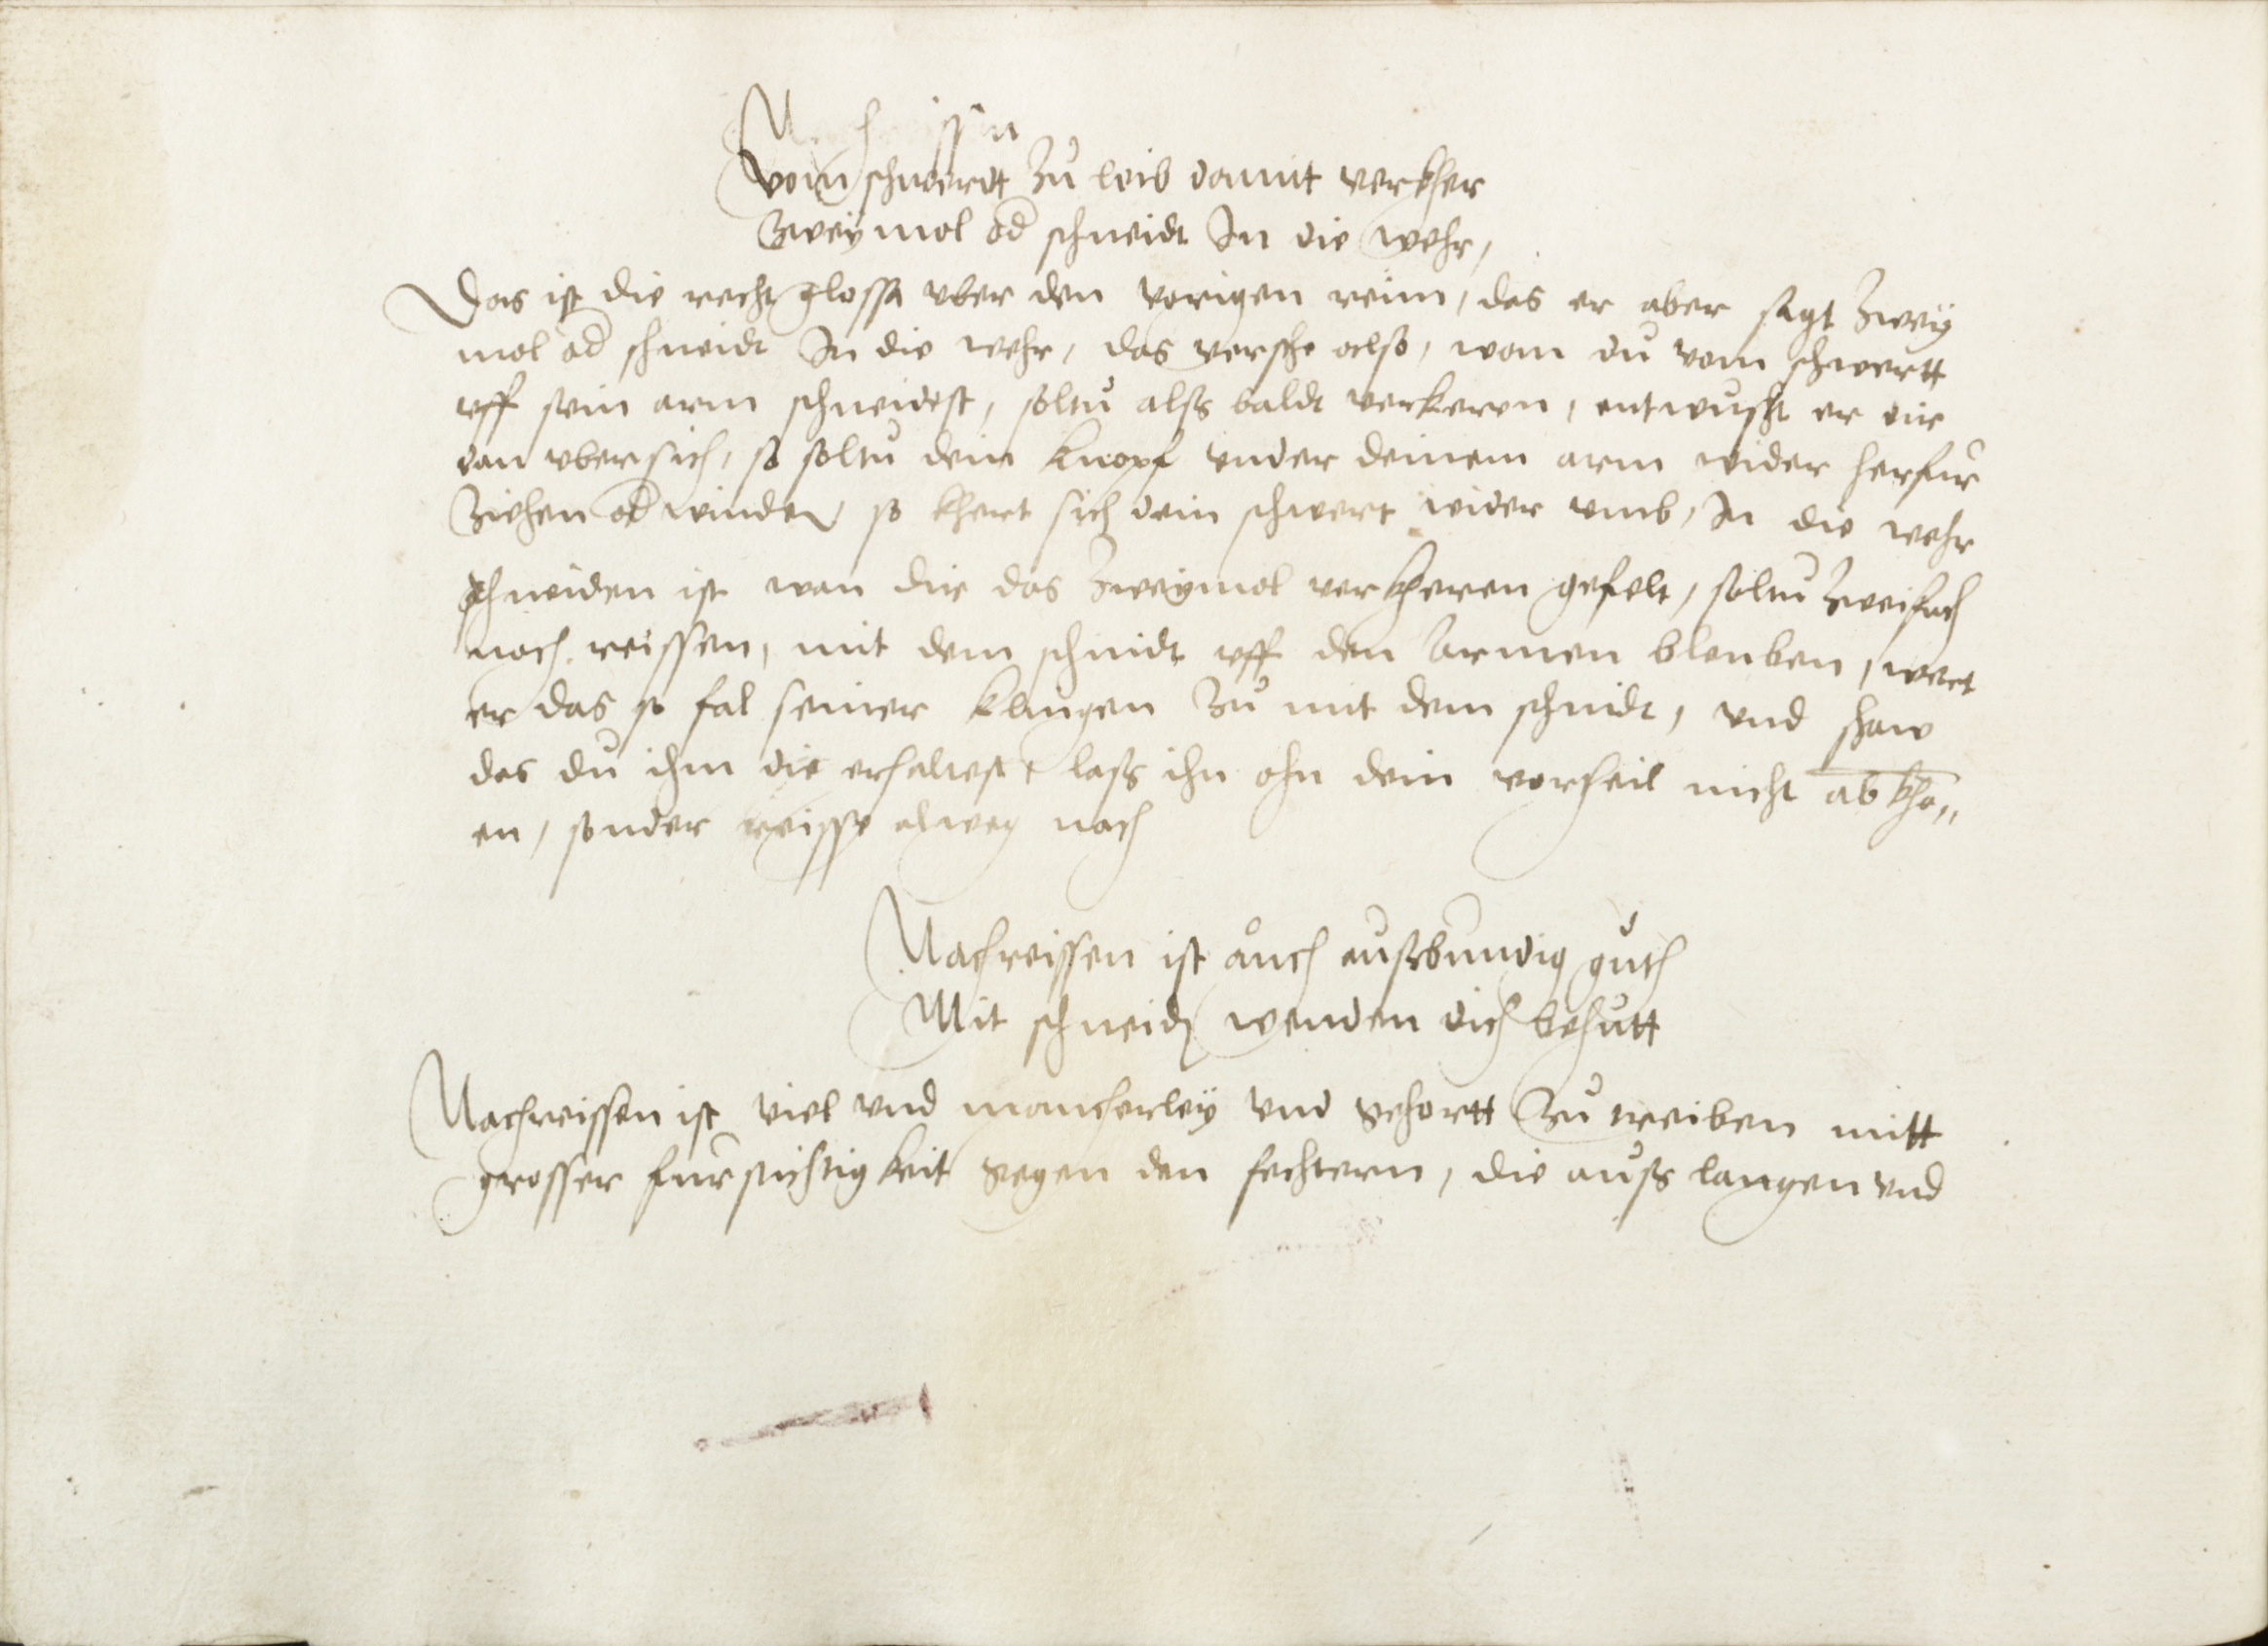 vom schwerdt zu leib damit verkher
zweymol od schneidt In die wehr,
Das ist die recht glossa vber den vorigen reim, das er aber sagt zweÿ
mol od schneidt In die wehr, das versthe also, wan du vom schwertt
vff sein arm schneidest, soltu alss baldt verkeren, entwuscht er dir
dan vbersich, so soltu dein knopf vnder deinem arm wider herfur
ziehen od winden, so khert sich dein schwert wider vmb, In die wehr
schneiden ist wan dir das zweymol verkheren gefelt, soltu zweifach
noch reissen, mit dem schnidt vff den armen bleuben, wert
er das so fal seiner klingen zu mit dem schnidt, vnd schaw
das du ihm die erhaltest, lass ihn ohn dein vortheil nicht abkho„
en, sonder reisse alweg noch
Nachreissen ist auch aussbundig guth
Mit schneid wenden dich behutt
Nachreissen ist viel vnd mancherleÿ vnd gehortt zu treiben mitt
grosser fursichtigkeit gegen den fechtern, die auss langen vnd